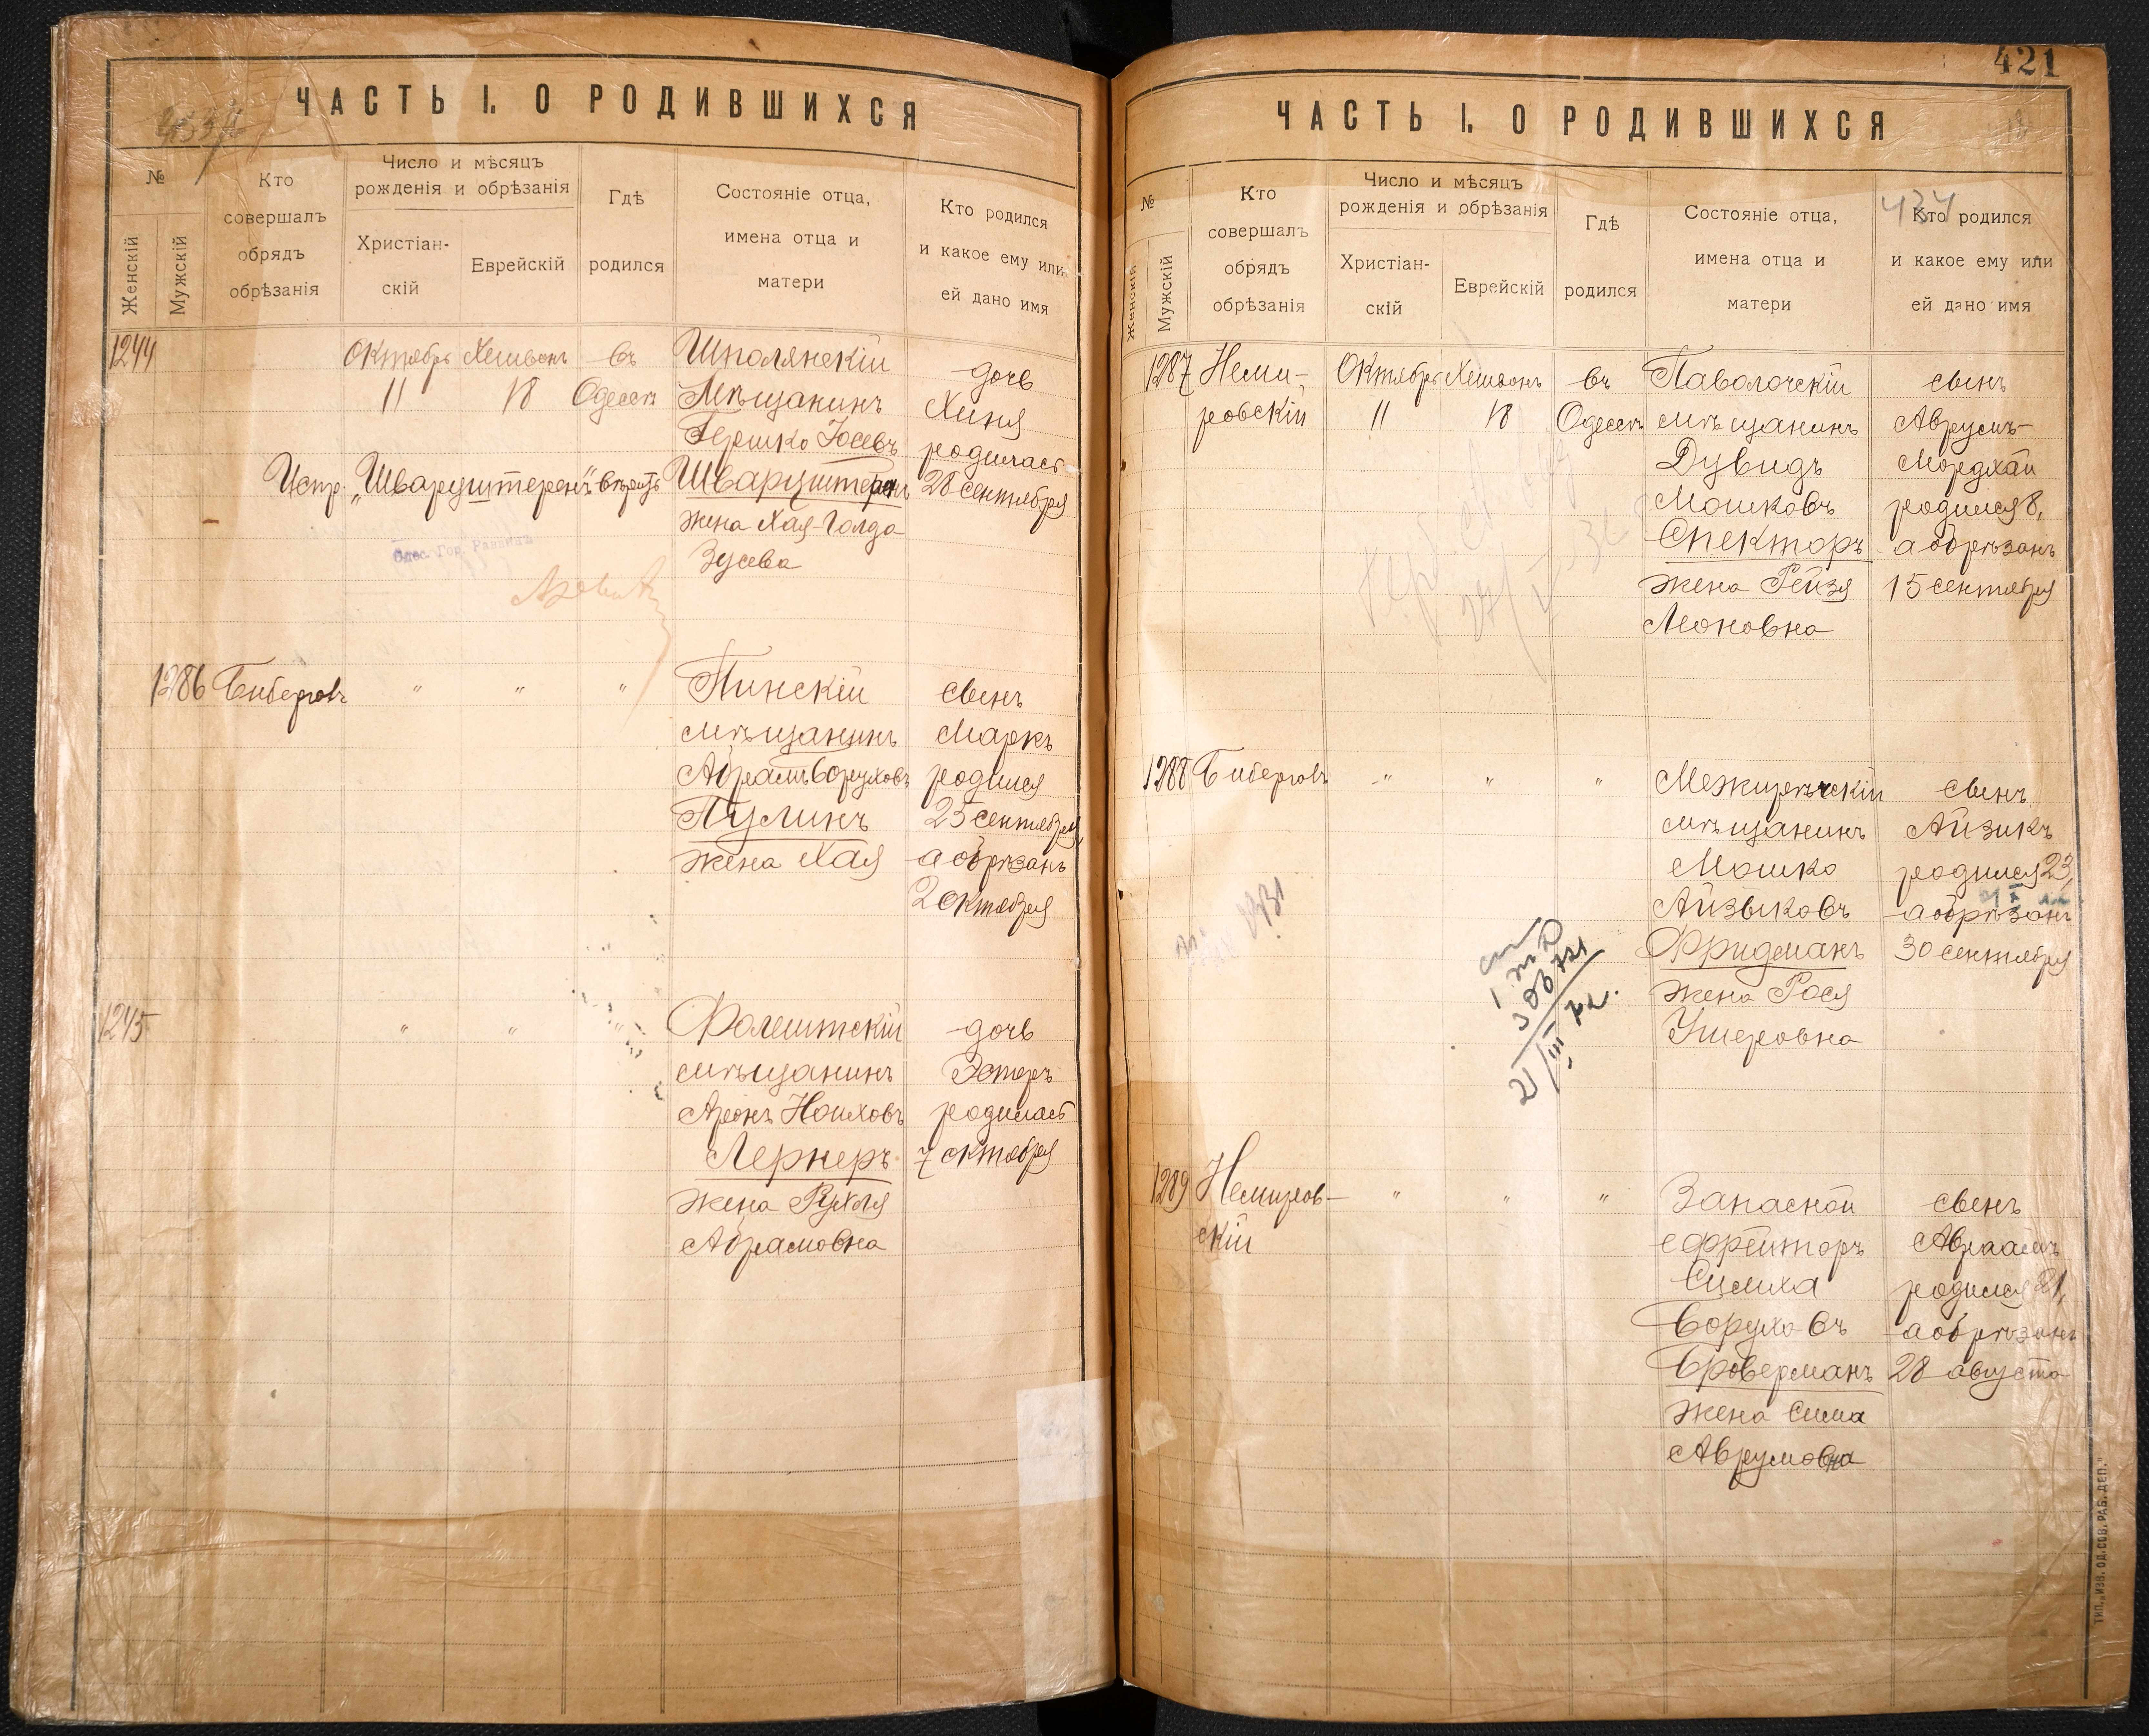 ЧАСТЬ I. О РОДИВШИХСЯ
№
Женскій
Мужскій
Кто
совершалъ
обрядъ
обрѣзанія
Число и мѣсяцъ
рожденія и обрѣзанія
Христіан-
скій
Еврейскій
Гдѣ
родился
Состояніе отца,
имена отца и
матери
Кто родился
и какое ему или
ей дано имя
1244
Октябрь
11
Хешвонъ
18
въ
Одессѣ
Шполянскій
Мѣщанинъ
Гершко Іосевъ
Шварцштернъ
жена Хая-Голда
Зусева
дочь
Хиня
родилась
28 сентября
Испр. „Шварцштеренъ" вѣрить
Одес. Гор. Раввинъ
1286 Биберговъ
" " "
Пинскій
мѣщанинъ
Абрамъ Боруховъ
Пулинъ
жена Хая
сынъ
Маркъ
родился
25 сентября,
а обрѣзанъ
2 октября
1245
" " "
Фалештскій
мѣщанинъ
Аронъ Ноиховъ
Лернеръ
жена Рухля
Абрамовна
дочь
Эстеръ
родилась
7 октября
421
ЧАСТЬ I. О РОДИВШИХСЯ
№
Женскій
Мужскій
Кто
совершалъ
обрядъ
обрѣзанія
Число и мѣсяцъ
рожденія и обрѣзанія
Христіан-
скій
Еврейскій
Гдѣ
родился
Состояніе отца,
имена отца и
матери
434
Кто родился
и какое ему или
ей дано имя
1287 Неми-
ровскій
Октябрь
11
Хешвонъ
18
въ
Одессѣ
Паволочскій
мѣщанинъ
Дувидъ
Мошковъ
Спекторъ
жена Рейзя
Леоновна
сынъ
Аврумъ-
Мордхай
родился 8,
а обрѣзанъ
15 сентября
1288 Биберговъ
" " "
Межирѣчскій
мѣщанинъ
Мошко
Айзыковъ
Фридманъ
жена Рося
Ушеровна
сынъ
Айзикъ
родился 23,
а обрѣзанъ
30 сентября
21/III
1289 Немиров-
скій
" " "
Запасной
ефрейторъ
Симха
Боруховъ
Броверманъ
жена Сима
Аврумовна
сынъ
Авраамъ
родился 21,
а обрѣзанъ
28 августа
ТИП. „ИЗВ. ОД. СОВ. РАБ. ДЕП."